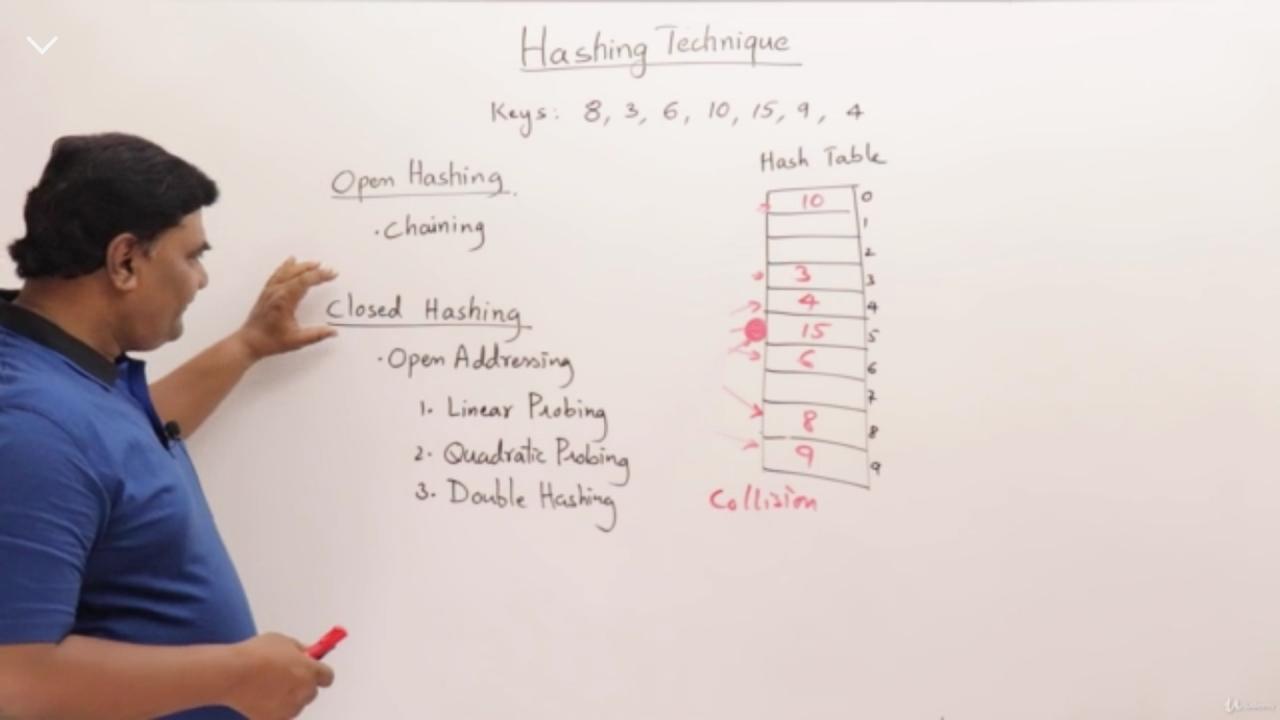 Hashing Technique
Keys: 8, 3, 6, 10, 15, 9, 4
Open Hashing
. Chaining
Closed Hashing
. Open Addressing
1. Linear Probing
2. Quadratic Probing
3. Double Hashing
Hash Table
10 0
1
2
3 3
4 4
15 5
6 6
7
8 8
9 9
Collision